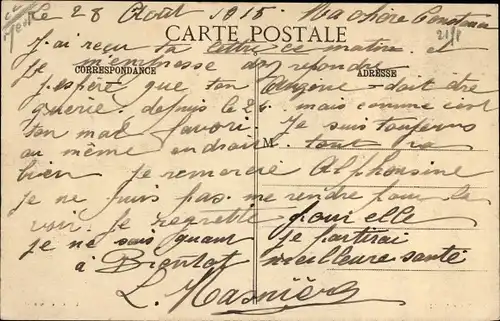 Le 28 Août 1915. Ma chère
CARTE POSTALE
J'ai reçu ta lettre ce matin et
je m'empresse d'y repondre
CORRESPONDANCE
ADRESSE
j'espère que ton Angine doit être
guérie. depuis le 25. mais comme c'est
ton mal favori. Je suis toujours
au même endroit. tout va
M
bien je remercie Alphonsine
je ne puis pas me rendre pour la
voir. Je regrette pour elle
je ne sais quant je partirai
à Bientot meilleure santé
L. Masnière